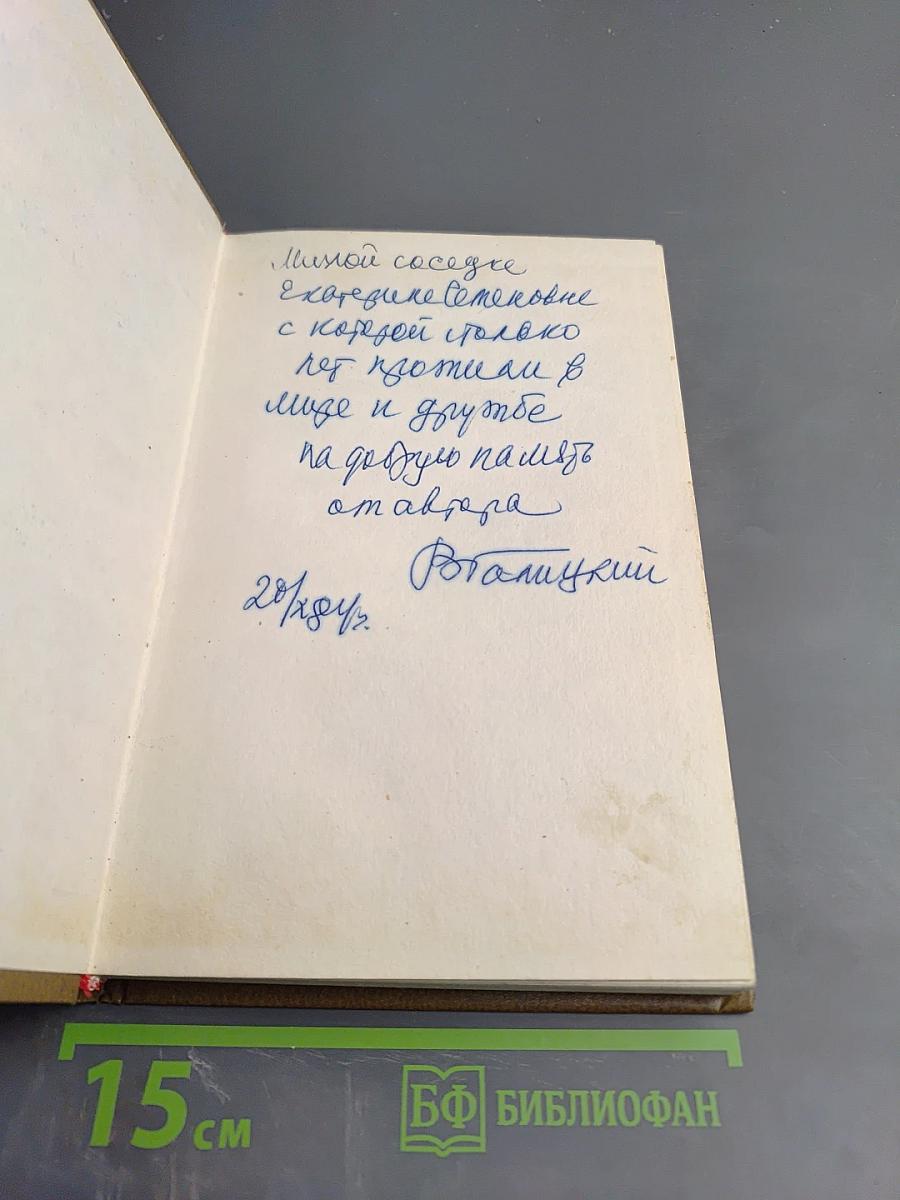 Милой соседке
Екатерине Семеновне
с которой столько
лет прожили в
мире и дружбе
на добрую память
от автора
ВГалицкий
20/X 84 г.
15 см
БФ БИБЛИОФАН